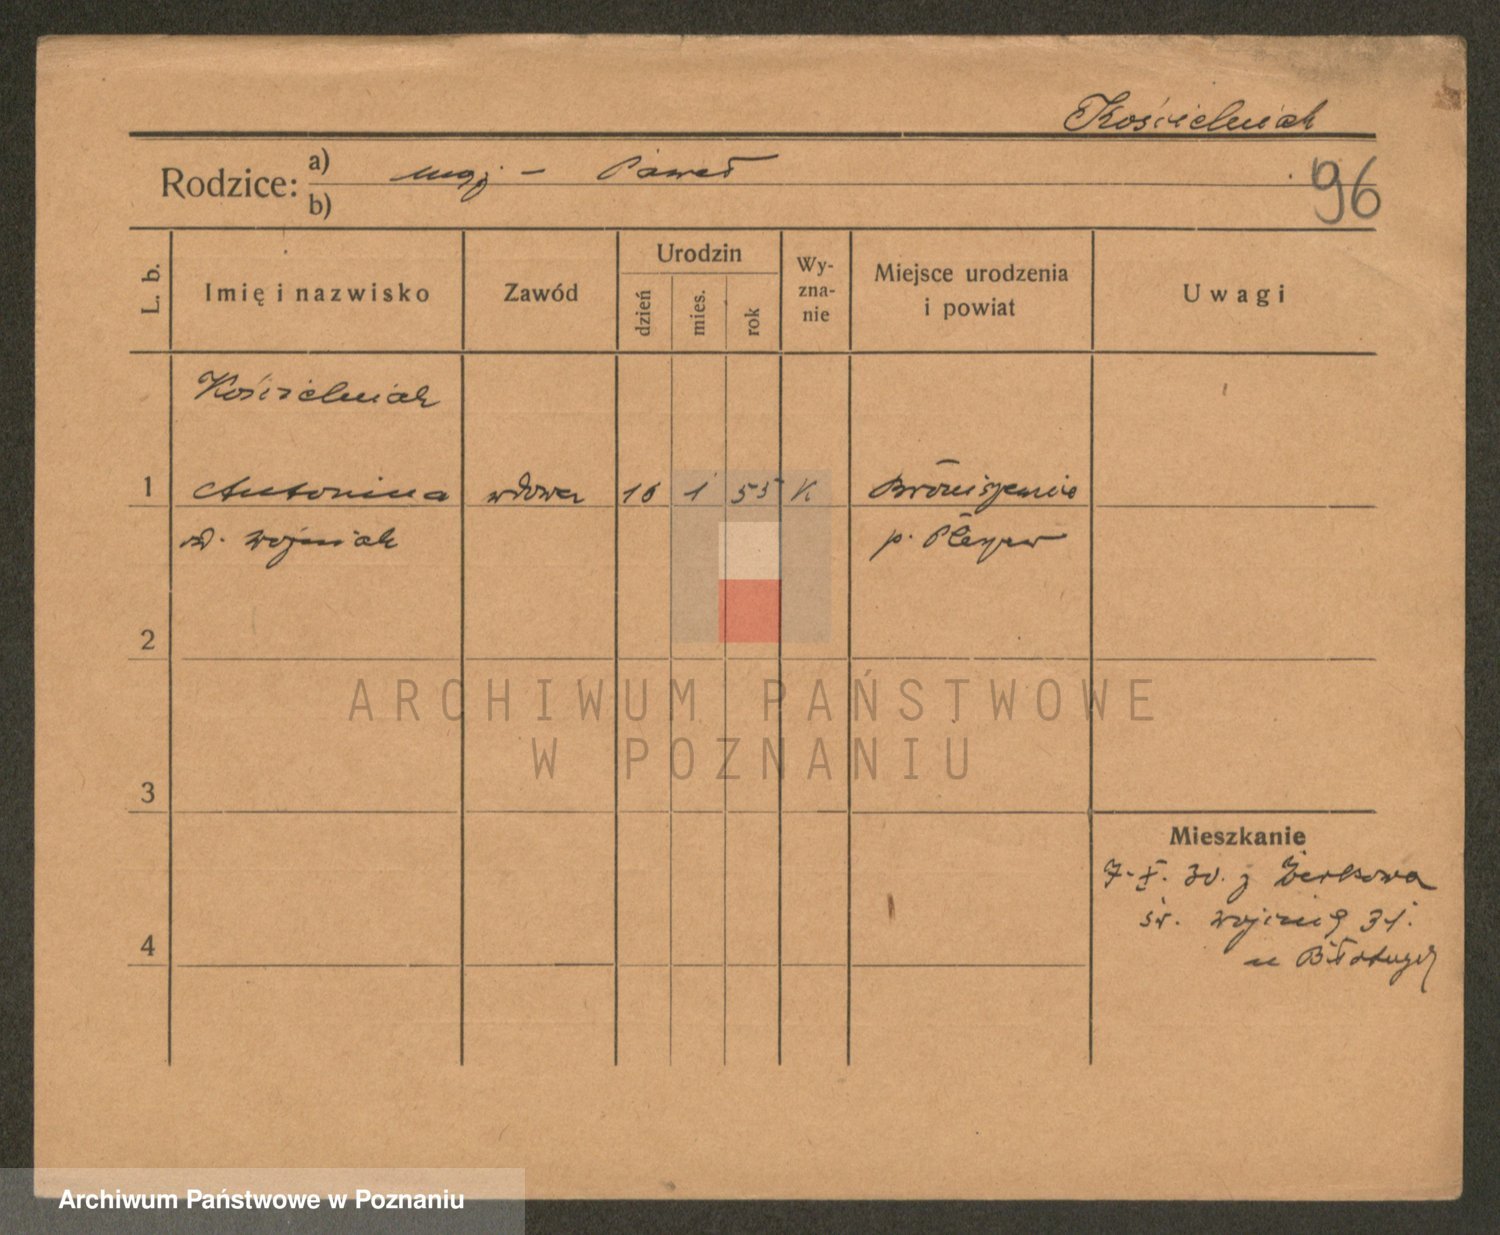 Kościelniak
Rodzice: a) mąż – Paweł
b)
96
L. b.
Imię i nazwisko
Zawód
Urodzin
dzień
mies.
rok
Wy-
zna-
nie
Miejsce urodzenia
i powiat
Uwagi
Kościelniak
1 Antonina wdowa 16 1 55 K Broniszewice
Woźniak p. Pleszew
2
ARCHIWUM PAŃSTWOWE
W POZNANIU
3
Mieszkanie
7-X. 30. z Żerkowa
św. Wojciech 31.
4
Archiwum Państwowe w Poznaniu